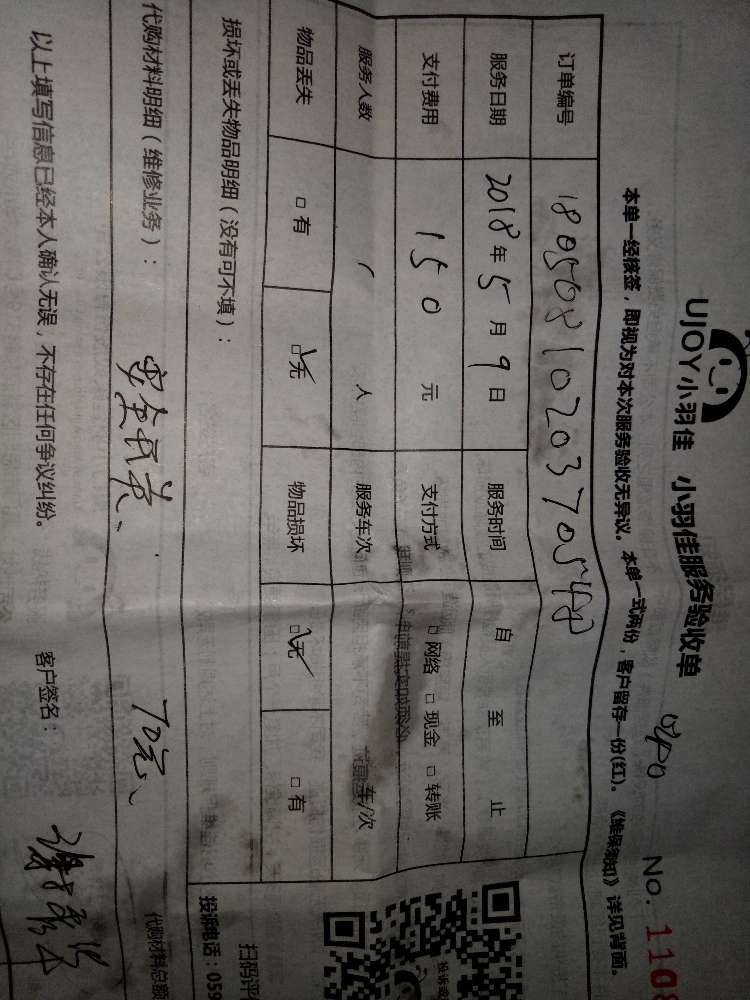 UJOY小羽佳 小羽佳服务验收单
No. 110
本单一经核签，即视为对本次服务验收无异议。本单一式两份，客户留存一份(红)。《维保须知》详见背面。
订单编号 180508102037054
服务日期 2018年5月9日 服务时间 自 至 止
支付费用 150元 支付方式 □网络 □现金 □转账
服务人数 1人 服务车次 车/次
物品丢失 □有 ☑无 物品损坏 ☑无 □有
损坏或丢失物品明细（没有可不填）：
扫码评
投诉电话：059
代购材料明细（维修业务）： 70元、 代购材料总额
以上填写信息已经本人确认无误，不存在任何争议纠纷。 客户签名：